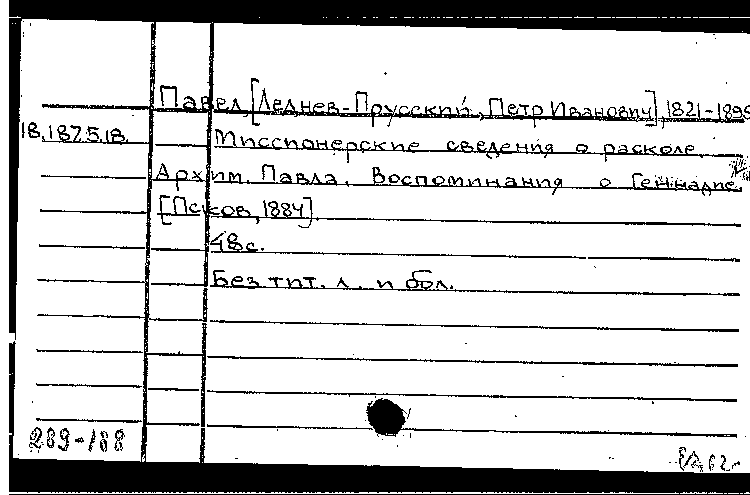 Павел, [Леднев-Прусский, Петр Иванович], 1821-1895
18.187.5.18. Миссионерские сведения о расколе.
Архим. Павла. Воспоминания о Геннадие.
[Псков, 1884].
48с.
Без тит. л. и обл.
289-188